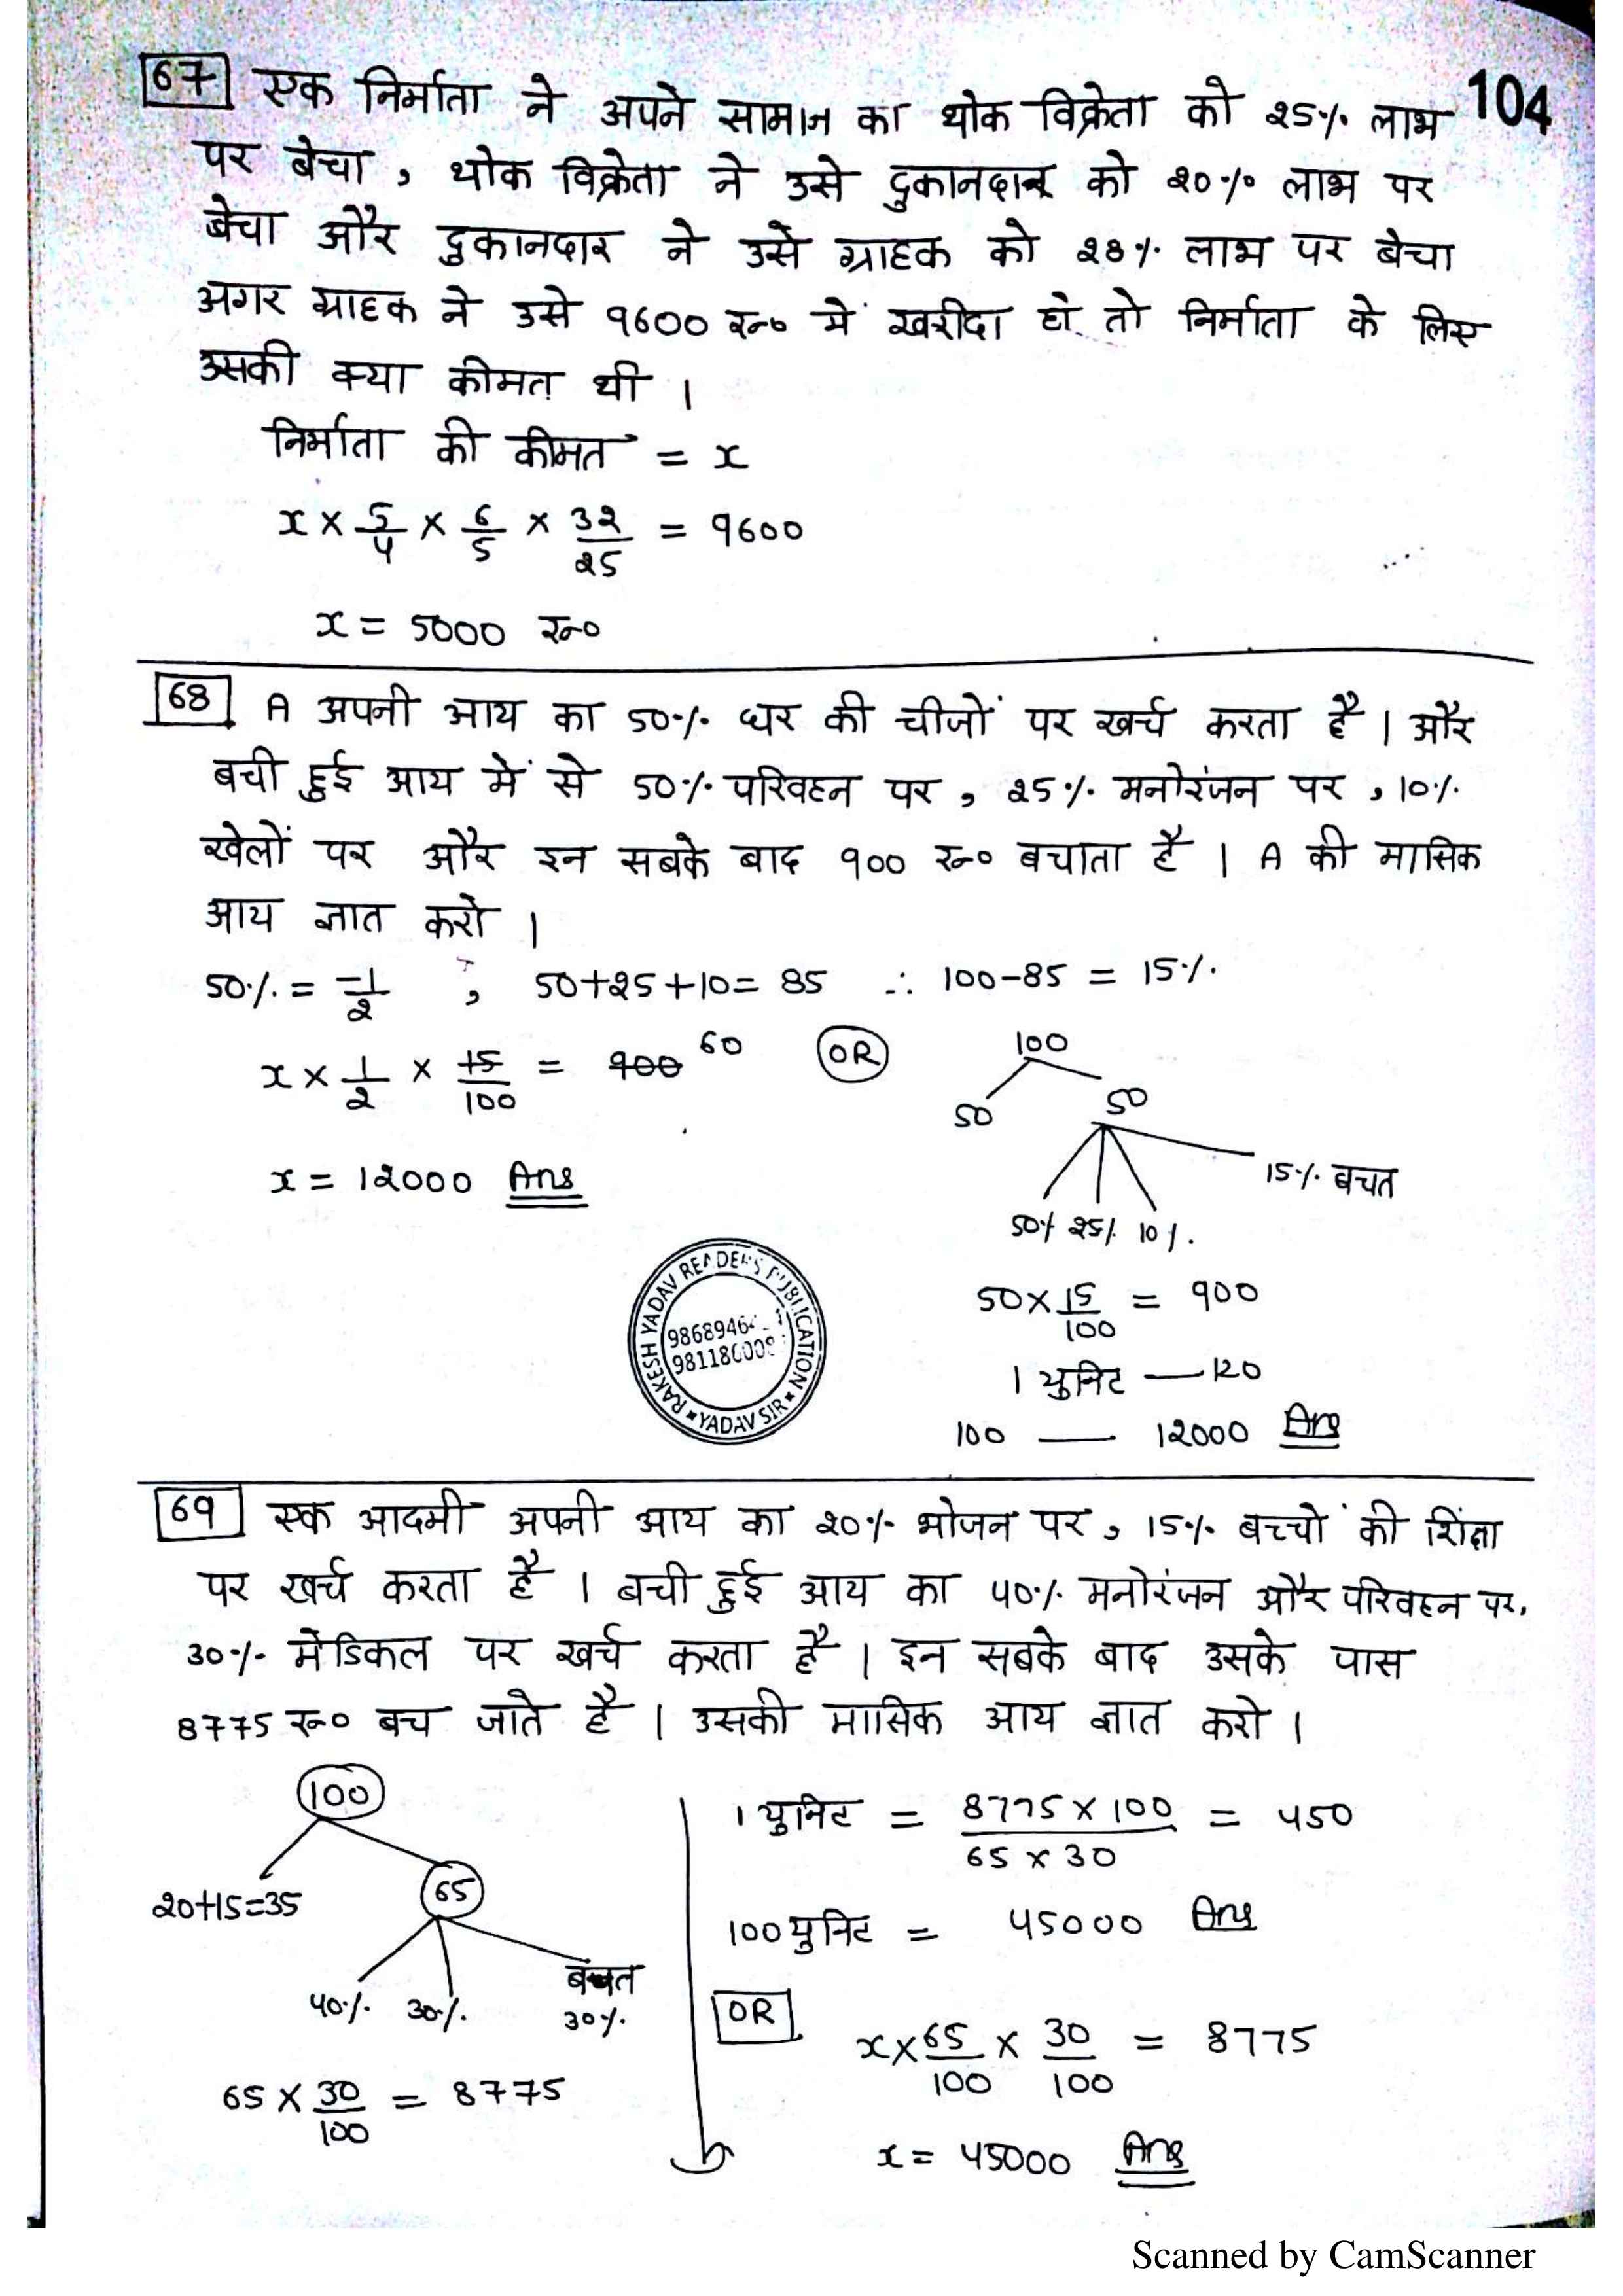 67 एक निर्माता ने अपने सामान का थोक विक्रेता को 25% लाभ 104
पर बेचा , थोक विक्रेता ने उसे दुकानदार को 20% लाभ पर
बेचा और दुकानदार ने उसे ग्राहक को 28% लाभ पर बेचा
अगर ग्राहक ने उसे 9600 रू० में खरीदा हो तो निर्माता के लिए
उसकी क्या कीमत थी ।
निर्माता की कीमत = x
x × 5/4 × 6/5 × 32/25 = 9600
x = 5000 रू०
68 A अपनी आय का 50% घर की चीजों पर खर्च करता है । और
बची हुई आय में से 50% परिवहन पर , 25% मनोरंजन पर , 10%
खेलों पर और इन सबके बाद 900 रू० बचाता है । A की मासिक
आय ज्ञात करो ।
50% = 1/2 , 50+25+10= 85 ∴ 100-85 = 15%
x × 1/2 × 15/100 = 900 60
x = 12000 Ans
OR
100
50 50
50% 25% 10% 15% बचत
50 × 15/100 = 900
1 युनिट — 120
100 — 12000 Ans
RAKESH YADAV READERS PUBLICATION
YADAV SIR
69 एक आदमी अपनी आय का 20% भोजन पर , 15% बच्चों की शिक्षा
पर खर्च करता है । बची हुई आय का 40% मनोरंजन और परिवहन पर,
30% मेडिकल पर खर्च करता है । इन सबके बाद उसके पास
8775 रू० बच जाते है । उसकी मासिक आय ज्ञात करो ।
100
20+15=35 65
40% 30% बचत 30%
65 × 30/100 = 8775
1 युनिट = 8775 × 100 / 65 × 30 = 450
100 युनिट = 45000 Ans
OR
x × 65/100 × 30/100 = 8775
x = 45000 Ans
Scanned by CamScanner